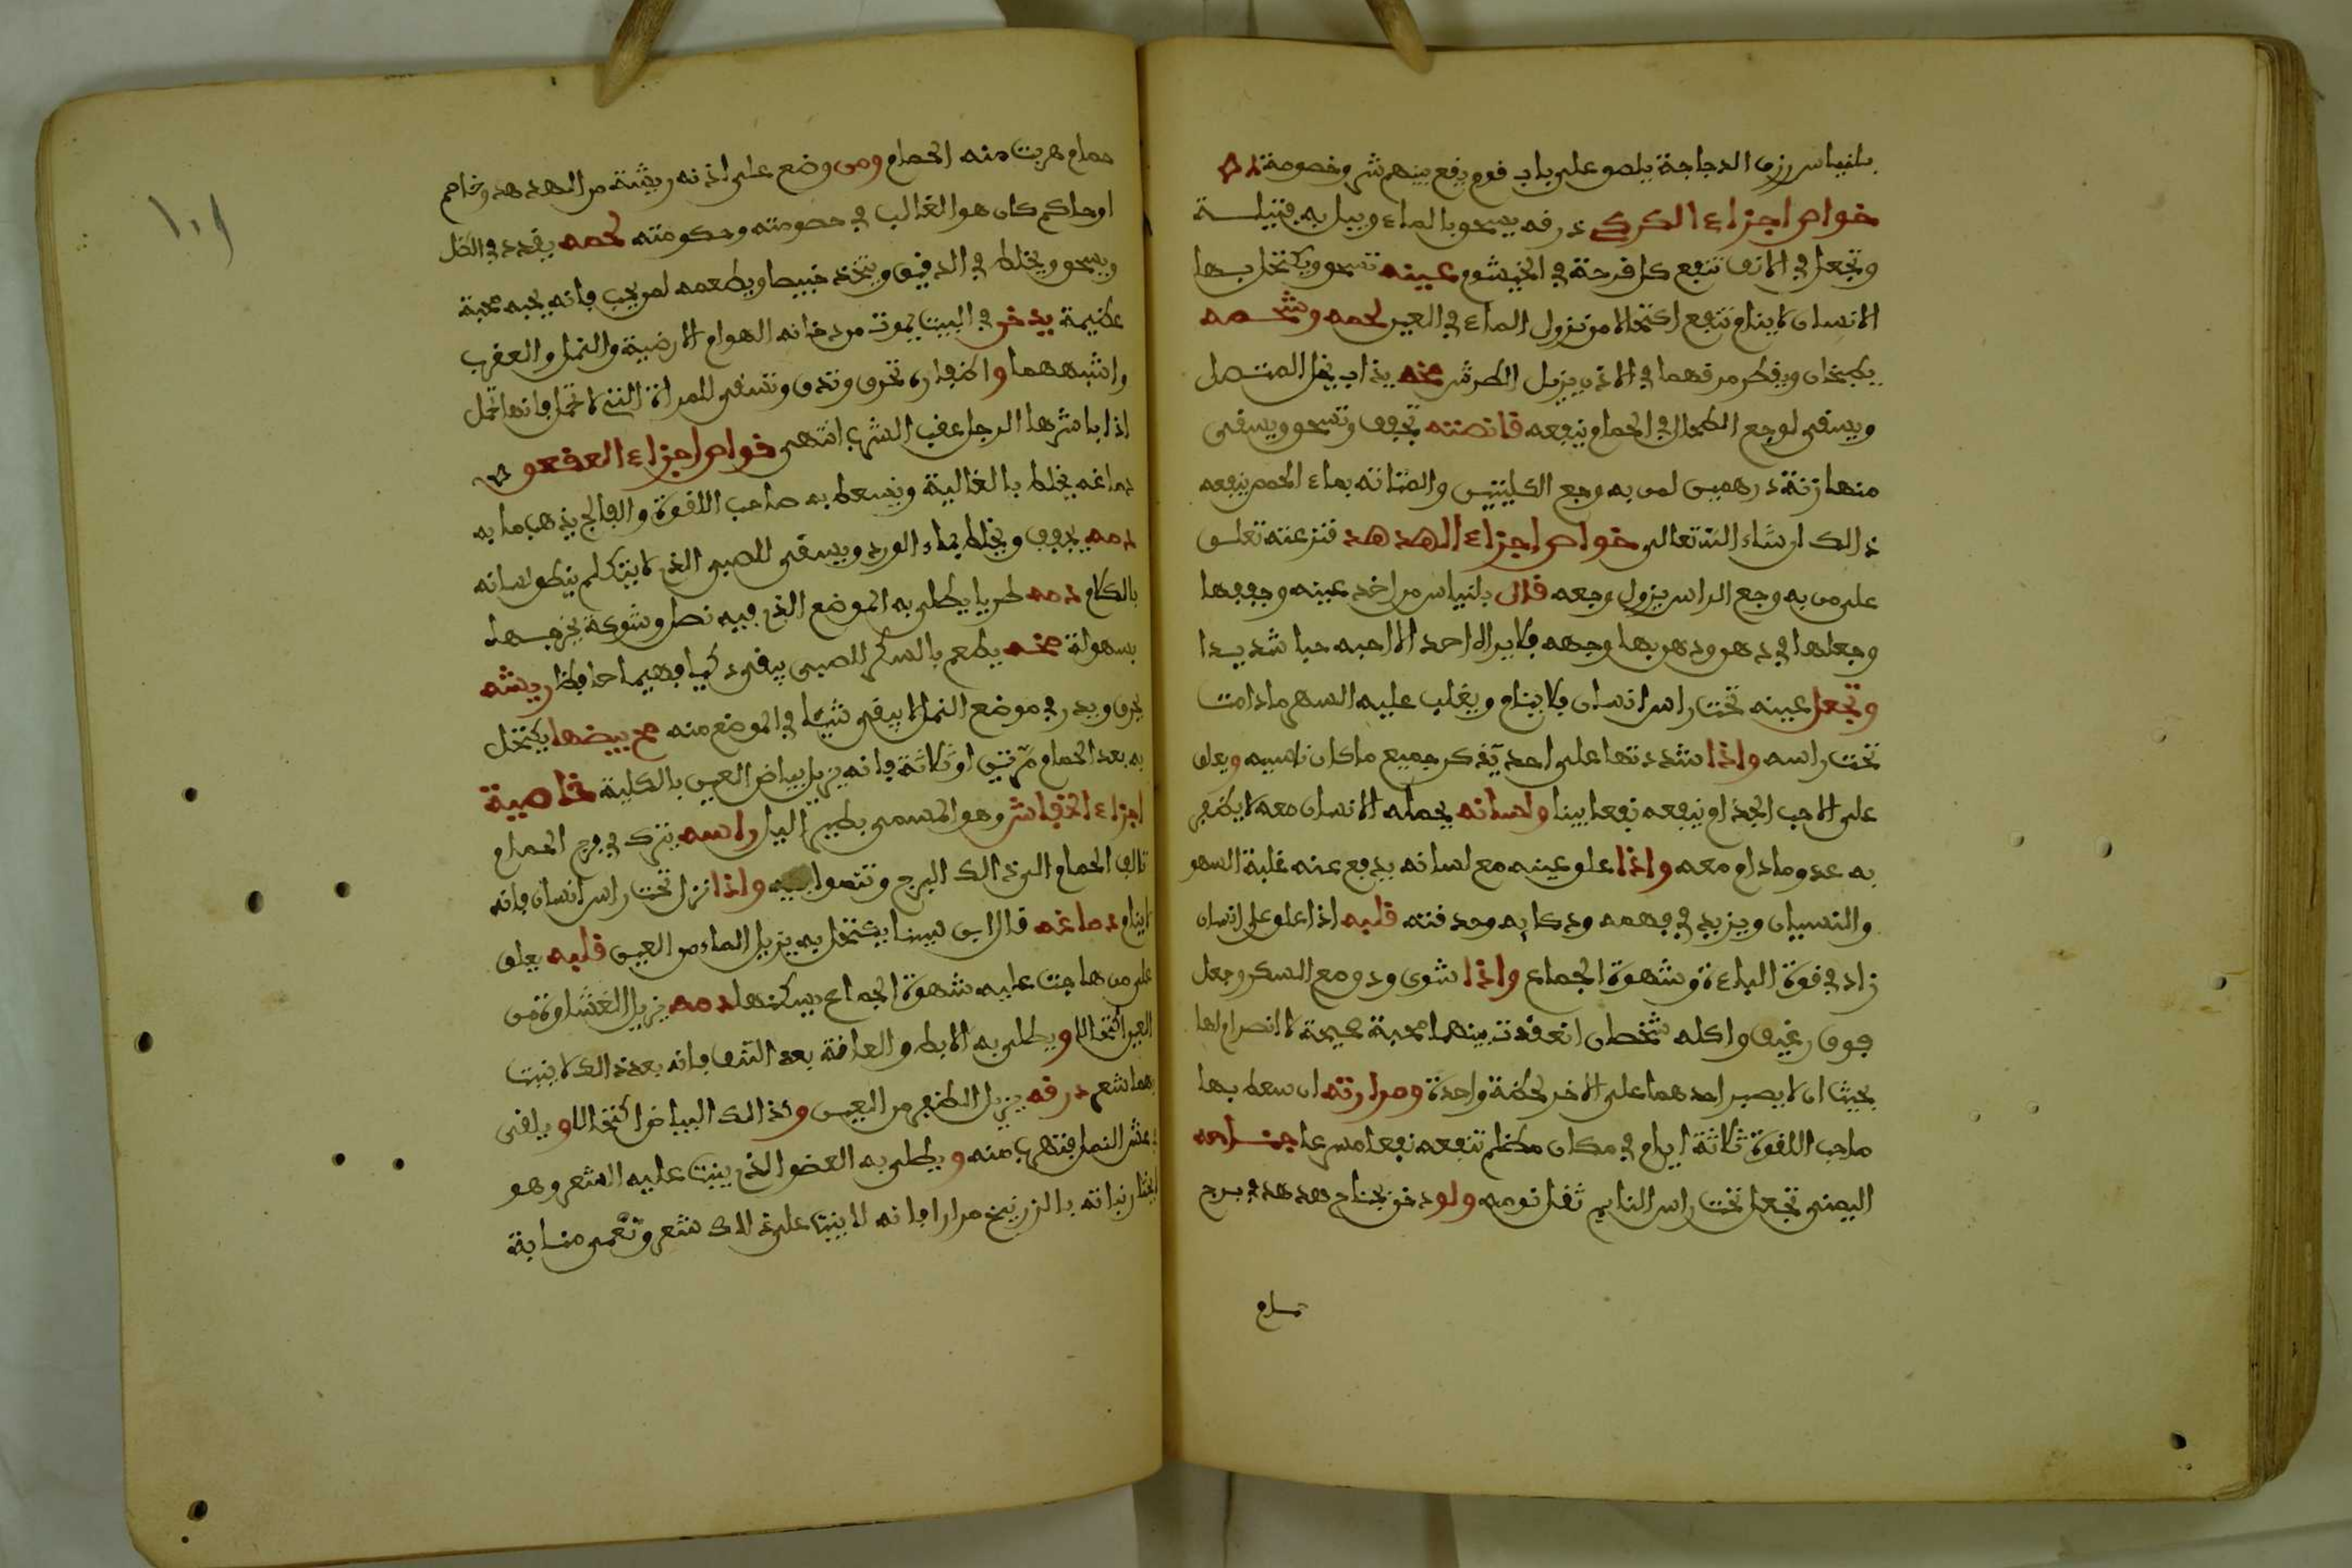 بلنياس رزق الدجاجة يلصق على باب قوم يقع بينهم شر وخصومة
خواص اجزاء الكركي ذرقه يسحق بالماء ويبل به فتيلة
وتجعل في الانف تنفع كل قرحة في الخيشوم عينه تسحق ويكتحل بها
الانسان لا ينام تنفع اكتحالا من نزول الماء في العين لحمه وشحمه
يطبخان ويقطر مرقهما في الاذن يزيل الطرش مخه يذاب بخل العنصل
ويسقى لوجع الطحال في الحمام ينفعه قانصته تجفف وتسحق ويسقى
منها زنة درهمين لمن به وجع الكليتين والمثانة بماء الحمص ينفعه
ذالك ان شاء الله تعالى خواص اجزاء الهدهد قنزعته تعلق
على من به وجع الراس يزول وجعه قال بلنياس من اخذ عينه وجففها
وجعلها في دهن ودهن بها وجهه فلا يراه احد الا احبه حبا شديدا
وتجعل عينه تحت راس انسان فلا ينام ويغلب عليه السهر ما دامت
تحت راسه واذا شددتها على احد يذكر جميع ما كان ناسيه ويعلق
على الاجب الجذام ينفعه نفعا بينا ولسانه يحمله الانسان معه لا يظفر
به عدو ما دام معه واذا علق عينه مع لسانه يدفع عنه غلبة السهو
والنسيان ويزيد في فهمه وذكايه وحدقته قلبه اذا علق على انسان
زاد في قوة الباءة وشهوة الجماع واذا شوى ودق مع السكر وجعل
فوق رغيف واكله شخصان انعقدت بينهما محبة عجيبة لا انصرام لها
بحيث ان لا يصبر احدهما على الاخر لحظة واحدة ومرارته ان سعط بها
صاحب اللقوة ثلاثة ايام في مكان مظلم تنفعه نفعا مسرعا جناحه
اليمنى تجعل تحت راس النايم ثقل نومه ولو دخن بجناح هدهد في برج
حمام
حمام هربت منه الحمام ومن وضع على اذنه ريشة من الهدهد وخاصم
او حاكم كان هو الغالب في خصومته وحكومته لحمه يقدد في الظل
ويسحق ويخلط في الدقيق ويتخذ خبيصا ويطعمه لمن يحب فانه يحبه محبة
عظيمة يدخن في البيت يموت من دخانه الهوام الارضية والنمل والعقرب
واشبههما واظفاره تحرق وتدق وتسقى للمراة التي لا تحمل فانها تحمل
اذا باشرها الرجل عقب الشرب انتهى خواص اجزاء العقعق
دماغه يخلط بالغالية ويسعط به صاحب اللقوة والفالج يذهب ما به
دمه يجفف ويخلط بماء الورد ويسقى للصبي الذي لا يتكلم ينطق لسانه
بالكلام دمه طريا يطلى به الموضع الذي فيه نصل وشوكة يخرجها
بسهولة مخه يطعم بالسكر للصبي يبقى ذكيا فهيما حافظا ريشه
يحرق ويذر في موضع النمل لا يبقى شيئا في الموضع منه مح بيضها يكتحل
به بعد الحمام مرتين او ثلاثة فانه يزيل بياض العين بالكلية خاصية
اجزاء الخفاش وهو المسمى بطير اليل راسه يترك في برج الحمام
تالف الحمام الى ذالك البرج واذا نزل تحت راس انسان فانه
لا ينام دماغه قال ابن سينا يكتحل به يزيل الماء من العين قلبه يعلق
على من هاجت عليه شهوة الجماع يسكنها دمه يزيل الغشاوة من
العين اكتحالا ويطلى به الابط والعانة بعد النتف فانه بعد ذالك لا ينبت
بهما شعر ذرقه يزيل الظفر من العين وكذالك البياض اكتحالا ويلقى
في عش النمل فتهرب منه ويطلى به العضو الذي ينبت عليه الشعر وهو
نباته بالزرنيخ مرارا فانه لا ينبت على ذالك شعر